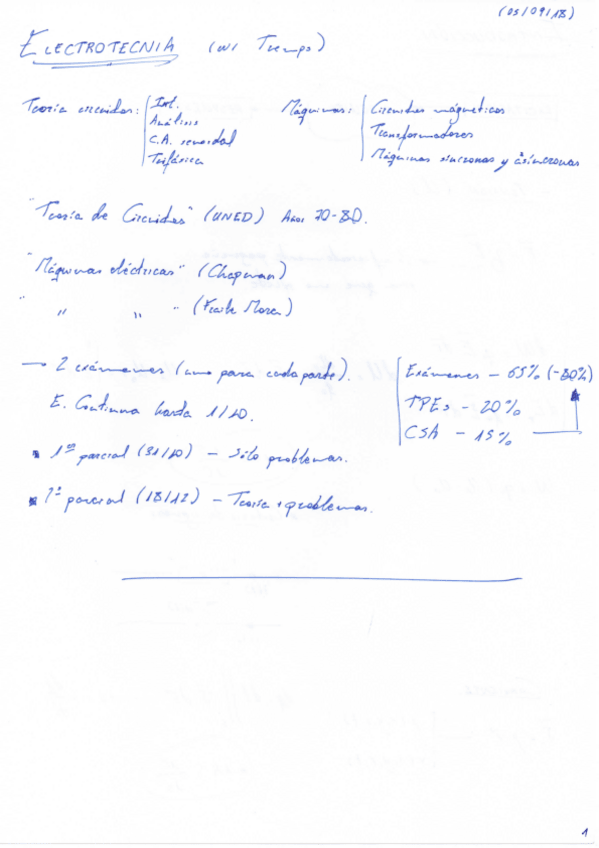 (05/09/18)
ELECTROTECNIA (W. Trempo)
Teoría circuitos: Int. Máquinas: Circuitos magnéticos
Análisis Transformadores
C.A. senoidal Máquinas síncronas y asíncronas
Trifásica
"Teoría de Circuitos" (UNED) Años 70-80.
"Máquinas eléctricas" (Chapman)
" " " " (Fraile Mora)
→ 2 exámenes (uno para cada parte). Exámenes - 65% (-80%)
E. Continua hasta 1/10. TPEs - 20%
CSA - 15%
1er parcial (31/10) - Sólo problemas.
parcial (18/12) - Teoría + problemas.
1